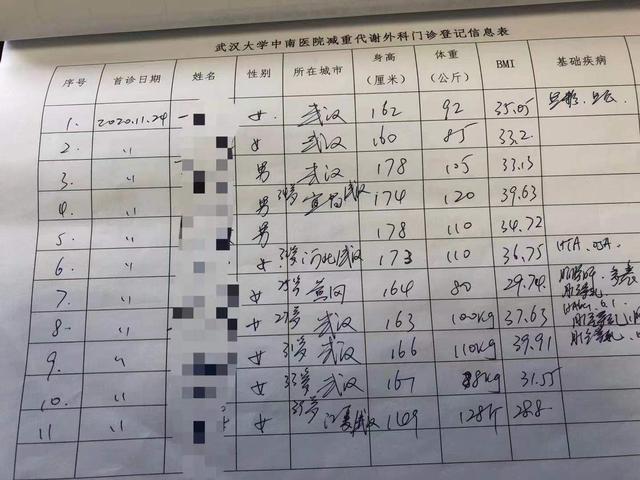 武汉大学中南医院减重代谢外科门诊登记信息表
序号 首诊日期 姓名 性别 所在城市 身高（厘米） 体重（公斤） BMI 基础疾病
1. 2020.11.24 女 武汉 162 92 35.05
2. 〃 女 武汉 160 85 33.2
3. 〃 男 武汉 178 105 33.13
4. 〃 男 宜昌 武汉 174 120 39.63
5. 〃 男 178 110 34.72
6. 〃 女 河北 武汉 173 110 36.75
7. 〃 女 25岁 黄冈 164 80 29.74
8. 〃 女 27岁 武汉 163 100kg 37.63
9. 〃 女 31岁 武汉 166 110kg 39.91
10. 〃 女 33岁 武汉 167 88kg 31.55
11 〃 女 35岁 江夏 武汉 169 128斤 28.8